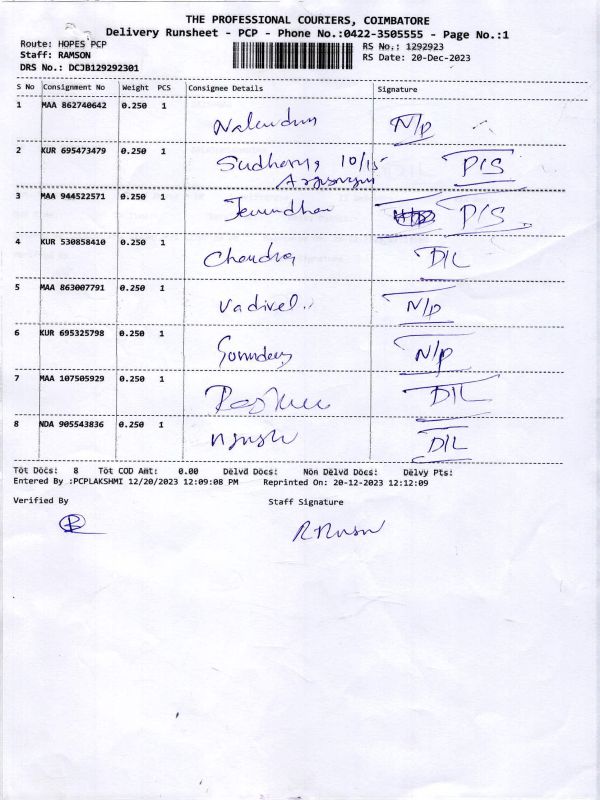 THE PROFESSIONAL COURIERS, COIMBATORE
Delivery Runsheet - PCP - Phone No.:0422-3505555 - Page No.:1
Route: HOPES PCP
Staff: RAMSON
DRS No.: DCJB129292301
RS No.: 1292923
RS Date: 20-Dec-2023
S No Consignment No Weight PCS Consignee Details Signature
1 MAA 862740642 0.250 1 N/P
2 KUR 695473479 0.250 1 10/15 P/S
3 MAA 944522571 0.250 1 P/S
4 KUR 530858410 0.250 1 Chandra D/L
5 MAA 863007791 0.250 1 Vadivel N/P
6 KUR 695325798 0.250 1 N/P
7 MAA 107505929 0.250 1 D/L
8 NDA 905543836 0.250 1 D/L
Tot Docs: 8 Tot COD Amt: 0.00 Delvd Docs: Non Delvd Docs: Delvy Pts:
Entered By :PCPLAKSHMI 12/20/2023 12:09:08 PM Reprinted On: 20-12-2023 12:12:09
Verified By Staff Signature